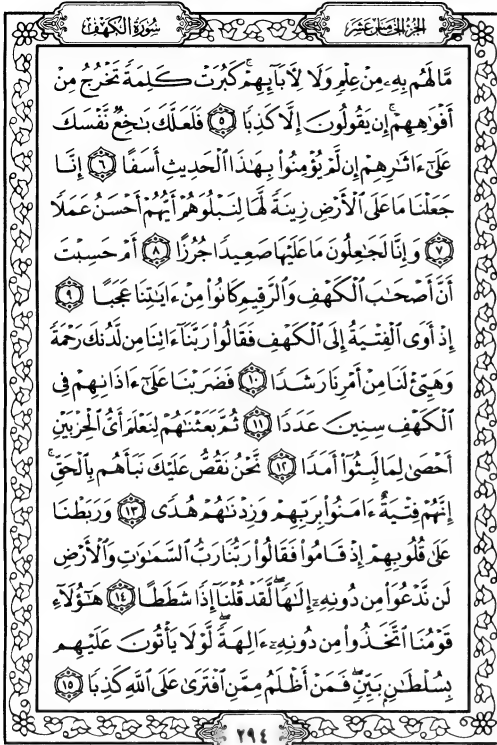 سُورَةُ الكَهْفِ
الجُزْءُ الخَامِسَ عَشَرَ
مَّا لَهُم بِهِۦ مِنْ عِلْمٍ وَلَا لِأَبَآئِهِمْ ۚ كَبُرَتْ كَلِمَةً تَخْرُجُ مِنْ
أَفْوَٰهِهِمْ ۚ إِن يَقُولُونَ إِلَّا كَذِبًا ٥ فَلَعَلَّكَ بَٰخِعٌ نَّفْسَكَ
عَلَىٰٓ ءَاثَٰرِهِمْ إِن لَّمْ يُؤْمِنُوا۟ بِهَٰذَا ٱلْحَدِيثِ أَسَفًا ٦ إِنَّا
جَعَلْنَا مَا عَلَى ٱلْأَرْضِ زِينَةً لَّهَا لِنَبْلُوَهُمْ أَيُّهُمْ أَحْسَنُ عَمَلًا
٧ وَإِنَّا لَجَٰعِلُونَ مَا عَلَيْهَا صَعِيدًا جُرُزًا ٨ أَمْ حَسِبْتَ
أَنَّ أَصْحَٰبَ ٱلْكَهْفِ وَٱلرَّقِيمِ كَانُوا۟ مِنْ ءَايَٰتِنَا عَجَبًا ٩
إِذْ أَوَى ٱلْفِتْيَةُ إِلَى ٱلْكَهْفِ فَقَالُوا۟ رَبَّنَآ ءَاتِنَا مِن لَّدُنكَ رَحْمَةً
وَهَيِّئْ لَنَا مِنْ أَمْرِنَا رَشَدًا ١٠ فَضَرَبْنَا عَلَىٰٓ ءَاذَانِهِمْ فِى
ٱلْكَهْفِ سِنِينَ عَدَدًا ١١ ثُمَّ بَعَثْنَٰهُمْ لِنَعْلَمَ أَىُّ ٱلْحِزْبَيْنِ
أَحْصَىٰ لِمَا لَبِثُوٓا۟ أَمَدًا ١٢ نَّحْنُ نَقُصُّ عَلَيْكَ نَبَأَهُم بِٱلْحَقِّ ۚ
إِنَّهُمْ فِتْيَةٌ ءَامَنُوا۟ بِرَبِّهِمْ وَزِدْنَٰهُمْ هُدًى ١٣ وَرَبَطْنَا
عَلَىٰ قُلُوبِهِمْ إِذْ قَامُوا۟ فَقَالُوا۟ رَبُّنَا رَبُّ ٱلسَّمَٰوَٰتِ وَٱلْأَرْضِ
لَن نَّدْعُوَا۟ مِن دُونِهِۦٓ إِلَٰهًا ۖ لَّقَدْ قُلْنَآ إِذًا شَطَطًا ١٤ هَٰٓؤُلَآءِ
قَوْمُنَا ٱتَّخَذُوا۟ مِن دُونِهِۦٓ ءَالِهَةً ۖ لَّوْلَا يَأْتُونَ عَلَيْهِم
بِسُلْطَٰنٍۭ بَيِّنٍ ۖ فَمَنْ أَظْلَمُ مِمَّنِ ٱفْتَرَىٰ عَلَى ٱللَّهِ كَذِبًا ١٥
٢٩٤